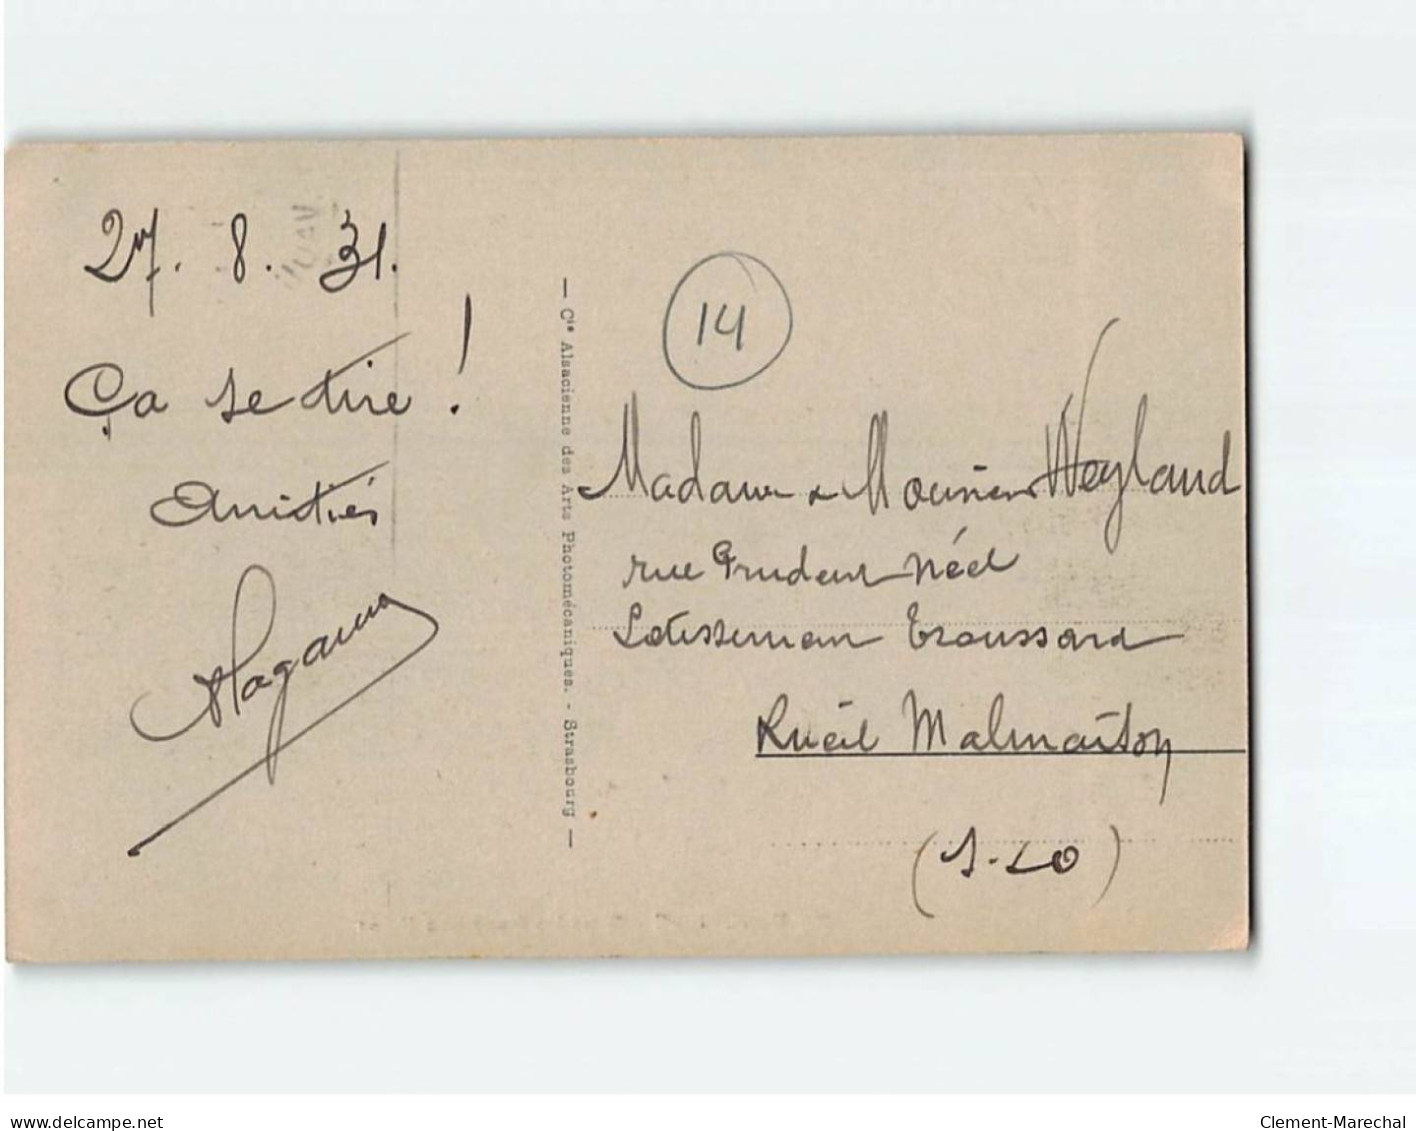 27. 8. 31.
Ça se tire !
Amitiés
— Cie Alsacienne des Arts Photomécaniques. - Strasbourg —
14
Madame & Monsieur Weyland
rue Prudent Néel
Lotissement Troussard
Rueil Malmaison
(S-&-O)
delcampe.net
Clement-Marechal